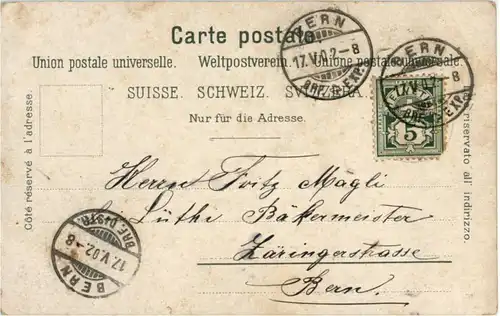 Carte postale.
Union postale universelle. Weltpostverein. Unione postale universale.
SUISSE. SCHWEIZ. SVIZZERA.
Nur für die Adresse.
Côté réservé à l'adresse.
riservato all' indirizzo.
BERN
17.V.02-8
BRF. EXP.
BERN
17.V.
-8
BRF. EXP.
5
Herrn Fritz Mägli
Lüthi Bäkermeister
Zäringerstrasse
Bern.
BERN
17.V.02.-8
BRF. DISTR.